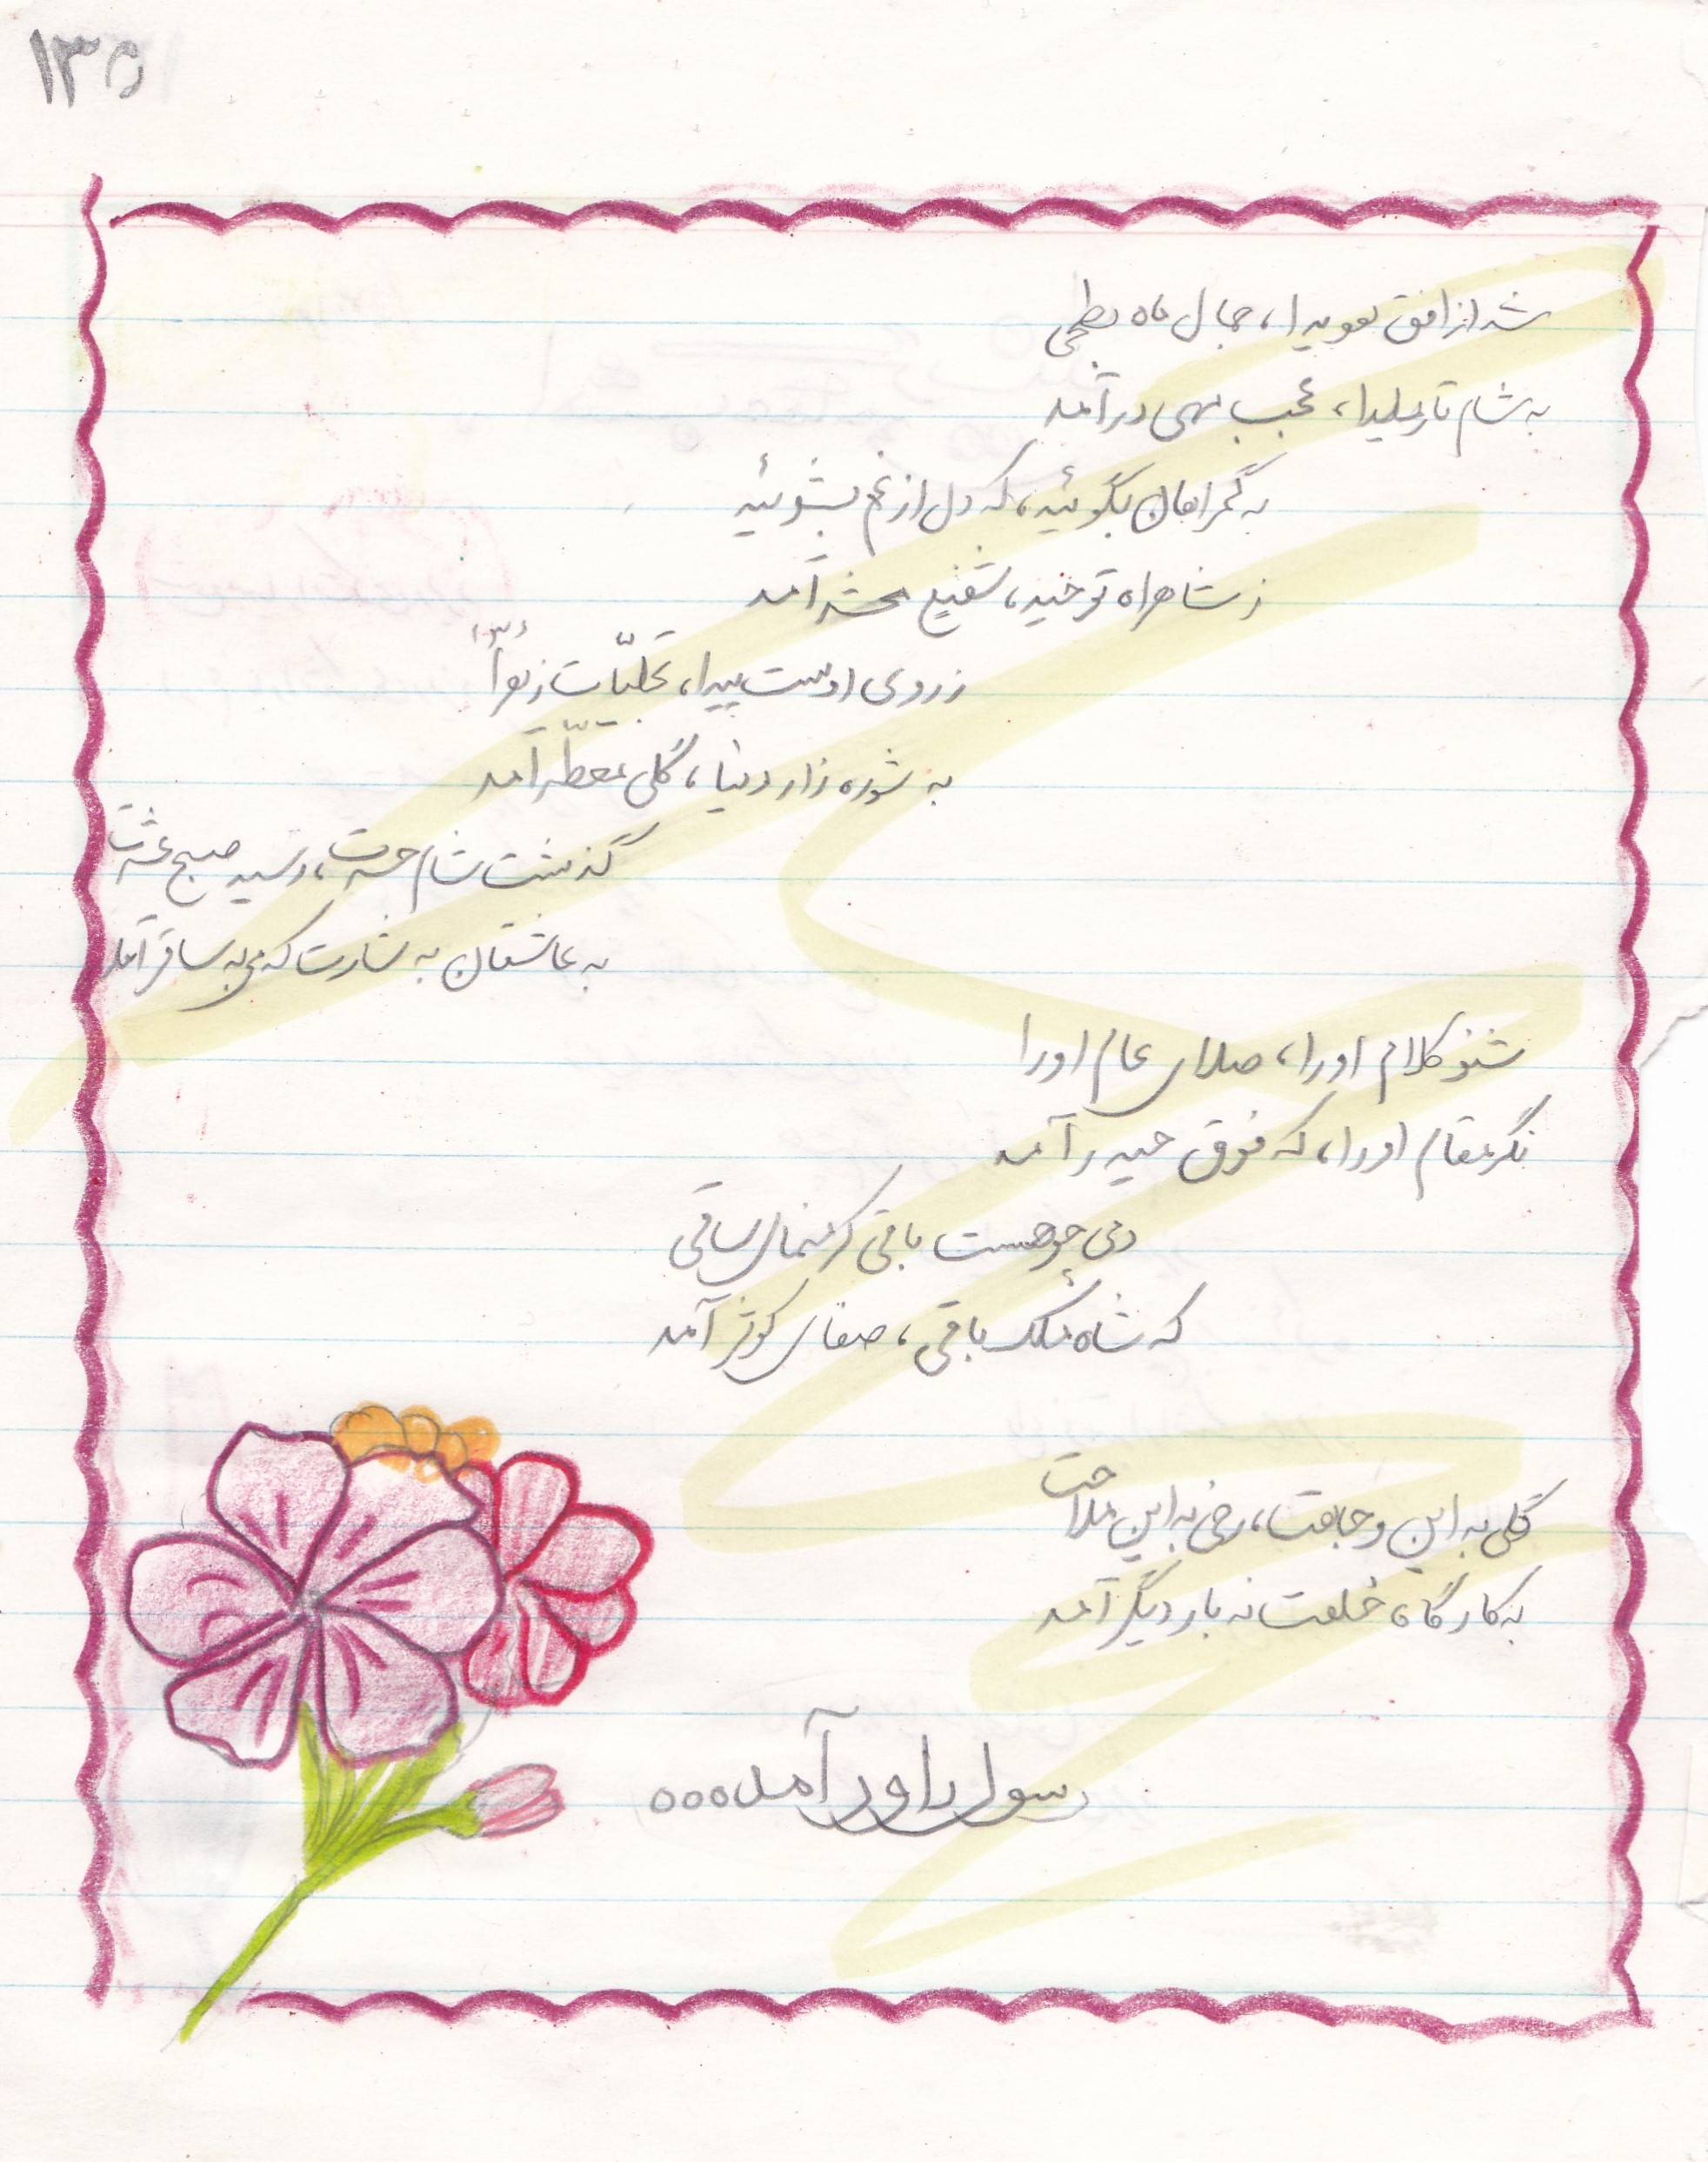 ۱۳۵
شد از افق هویدا، جمال ماه بطحی
به شام تار یلدا، عجب مهی درآمد
به گمراهان بگوئید، که دل از غم بشوئید
ز شاهراه توحید، شفیع محشر آمد
ز روی اوست پیدا، تجلیّات
به شوره زار دنیا، گلی معطّر آمد
گذشت شام حسرت، رسید صبح عشرت
به عاشقان بشارت که می به ساغر آمد
شنو کلام او را، صلای عام او را
نگر مقام او را، که فوق حیدر آمد
دمی چو هست باقی کرم نمای ساقی
که شاه ملک باقی، صفای کوثر آمد
گلی به این وجاهت، رخی به این ملاحت
به کارگاه خلقت نه بار دیگر آمد
رسول داور آمد...